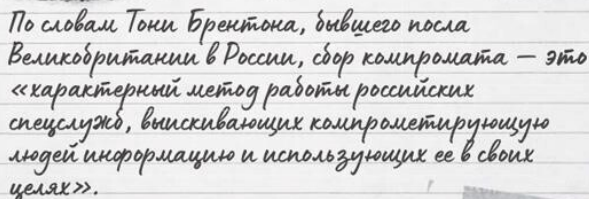 По словам Тони Брентона, бывшего посла
Великобритании в России, сбор компромата — это
«характерный метод работы российских
спецслужб, выискивающих компрометирующую
людей информацию и использующих ее в своих
целях».